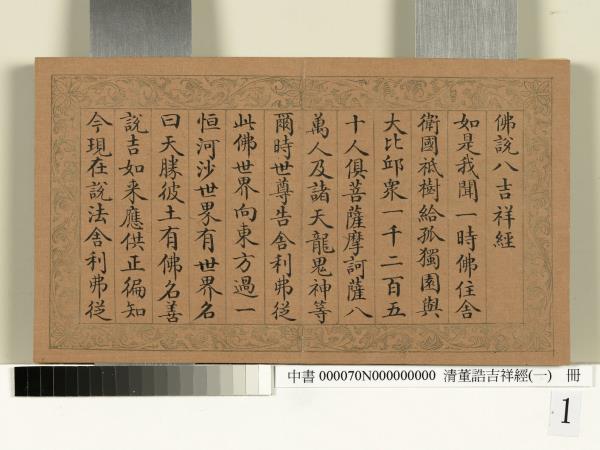 佛說八吉祥經
如是我聞一時佛住舍
衛國祇樹給孤獨園與
大比邱眾一千二百五
十人俱菩薩摩訶薩八
萬人及諸天龍鬼神等
爾時世尊告舍利弗從
此佛世界向東方過一
恒河沙世界有世界名
曰天勝彼土有佛名善
說吉如来應供正徧知
今現在說法舍利弗從
中書 000070N000000000 清董誥吉祥經(一) 冊
1